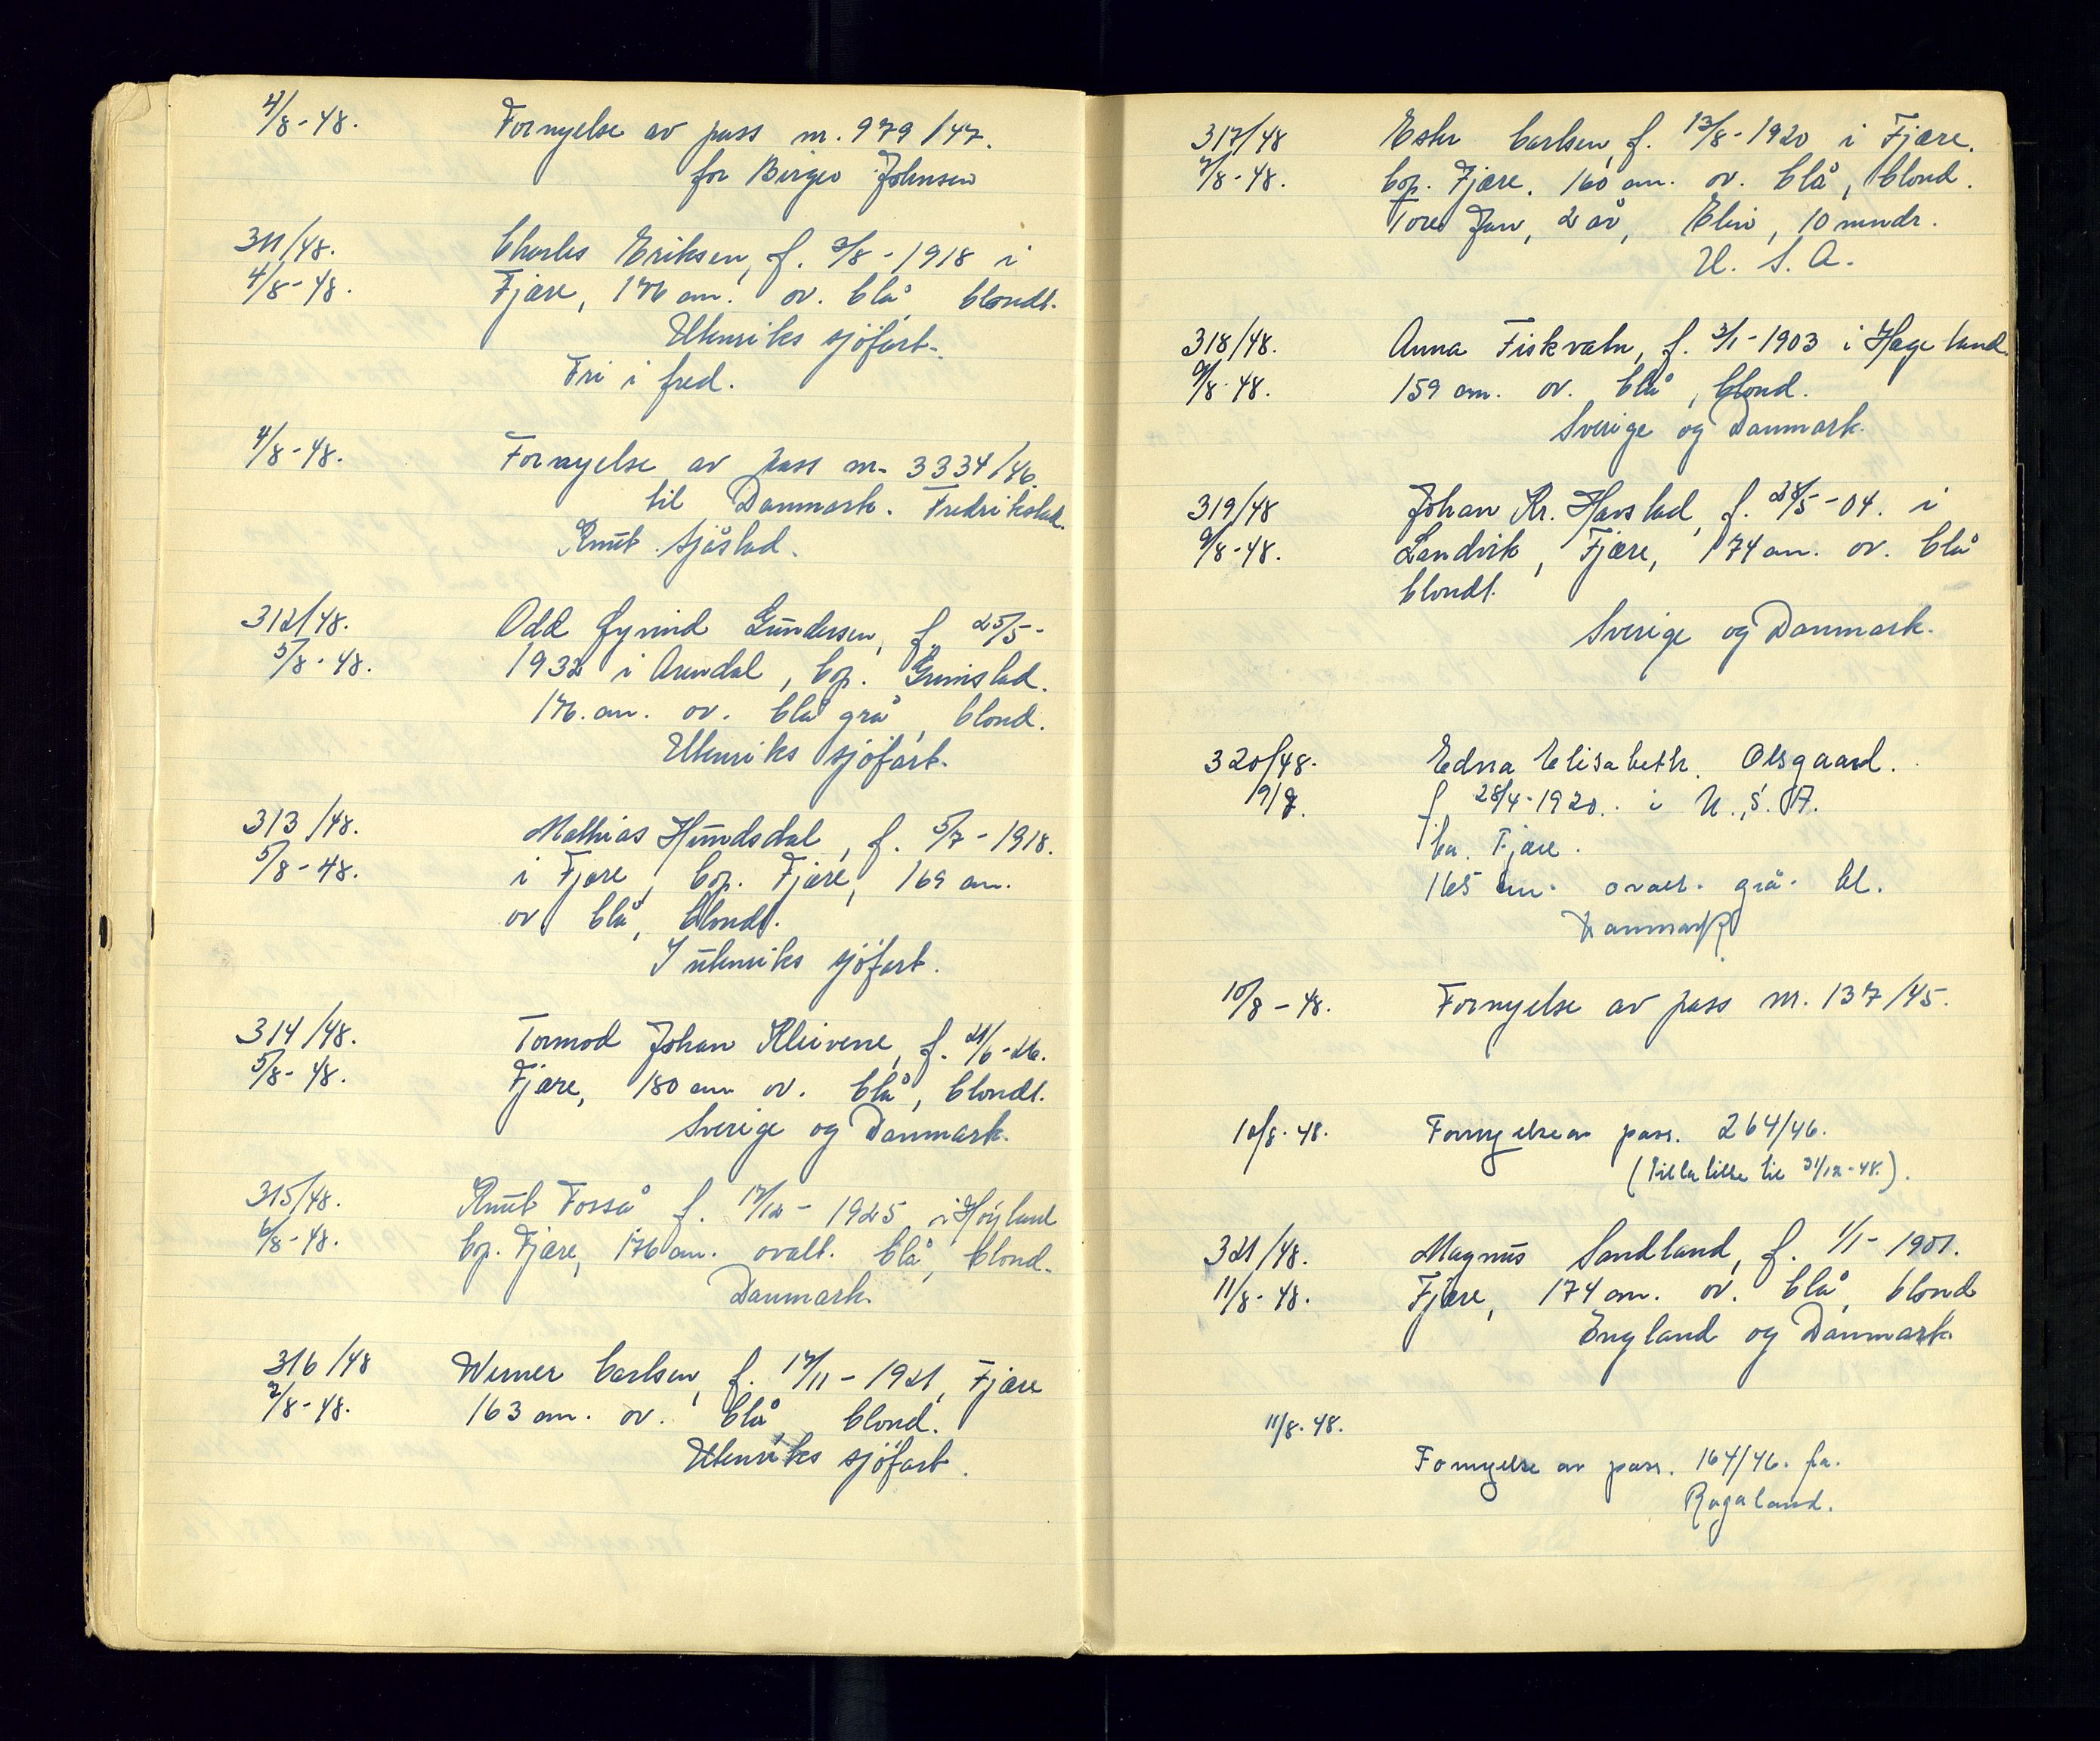 4/8-48. Fornyelse av pass nr. 979/47.
for Birger Johnsen
311/48. Charles Eriksen, f. 3/8-1918 i
4/8-48. Fjære, 176 cm. ov. blå blondt.
Utenriks sjöfart.
Fri i fred.
4/8-48. Fornyelse av pass nr. 3334/46.
til Danmark. Fredrikstad.
Knut Sjåstad.
312/48. Odd Øyvind Gundersen, f. 25/5-
5/8-48. 1932 i Arendal, bop. Grimstad.
176. cm. ov. blå grå, blond.
Utenriks sjöfart.
313/48. Mathias Hundsdal, f. 5/7-1918.
5/8-48. i Fjære, bop. Fjære, 169 cm.
ov blå, blondt.
I utenriks sjöfart.
314/48. Tormod Johan Kleivene, f. 21/6-26.
5/8-48. Fjære, 180 cm ov. blå, blondt.
Sverige og Danmark.
315/48. Knut Fosså f. 17/12-1925 i Höyland
6/8-48. bop. Fjære, 176 cm. ovalt. blå, blond.
Danmark.
316/48 Werner Carlsen, f. 17/11-1921, Fjære
7/8-48. 163 cm. ov. blå, blond.
Utenriks sjöfart.
317/48 Ester Carlsen, f. 13/8-1920 i Fjære.
7/8-48. bop. Fjære. 160 cm. ov. blå, blond.
Tore Jan, 2 år, Elin, 10 mndr.
U. S. A.
318/48. Anna Fiskvatn, f. 3/1-1903 i Hægeland.
9/8-48. 159 cm. ov. blå, blond.
Sverige og Danmark.
319/48 Johan Kr. Havstad, f. 28/5-04. i
9/8-48. Landvik, Fjære, 174 cm. ov. blå
blondt.
Sverige og Danmark.
320/48. Edna Elisabeth. Olsgaard.
f 28/4-1920. i U.S.A.
Fjære.
165 cm. ovalt. grå. bl.
Danmark
10/8-48. Fornyelse av pass nr. 137/45.
10/8-48. Fornyelse av pass. 264/46.
(til 31/12-48.).
321/48. Magnus Sandland, f. 1/1-1901.
11/8-48. Fjære, 174 cm. ov. blå, blond
England og Danmark
11/8-48.
Fornyelse av pass. 164/46. fra.
Rogaland.